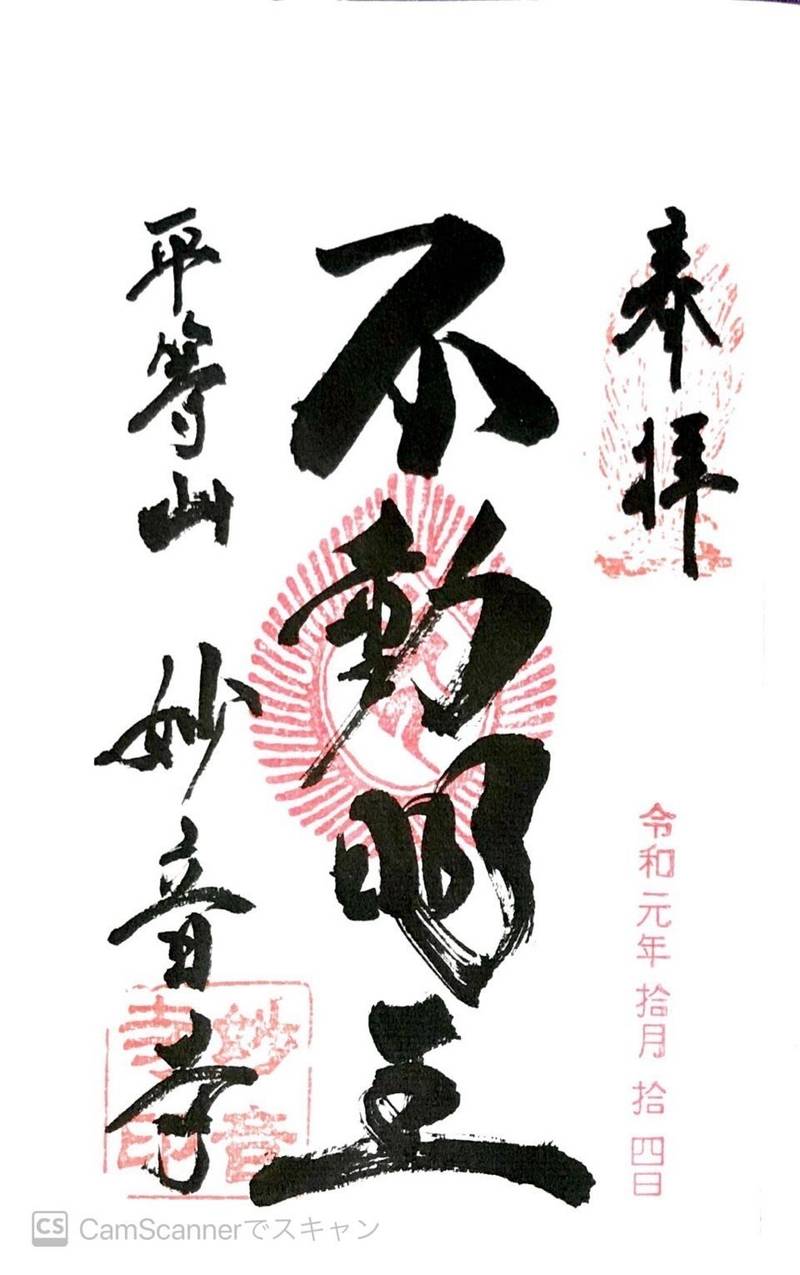 奉拝
令和元年拾月拾四日
不動明王
平等山 妙音寺
妙音
寺印
CS CamScannerでスキャン